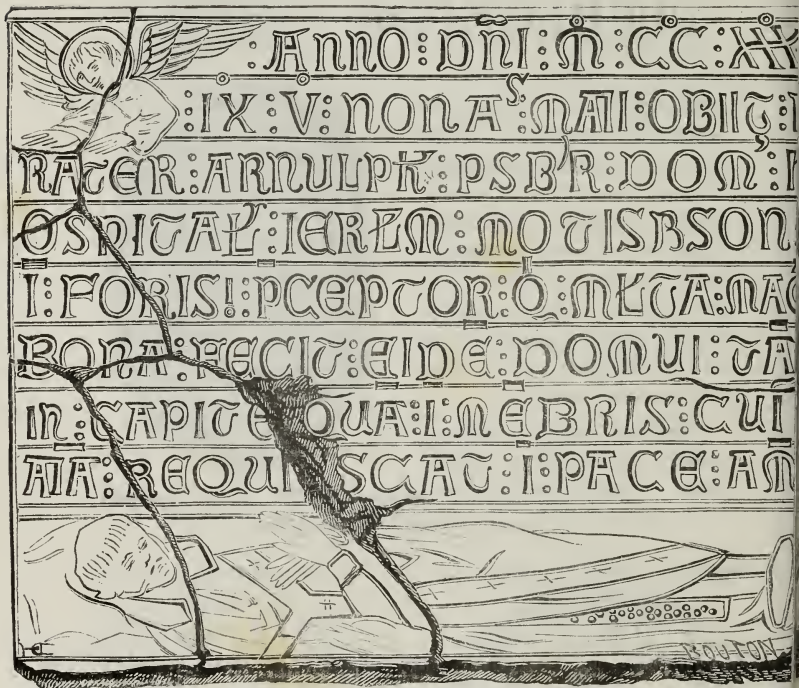 : ANNO : DNI : M : CC : XX
: IX : V : NONAS : MAII : OBIIT :
RATER : ARNULPH : PSBR : DOM :
OSPITAL : IERLM : MOTISBSON
I : FORIS! : PCEPTOR : Q : MLTA : MAG
BONA : FECIT : EIDE : DOMUI : TA
IN : CAPITE QUA : I : MEBRIS : CUI
AIA : REQUI SCAT : I : PACE : AM
BOUTON